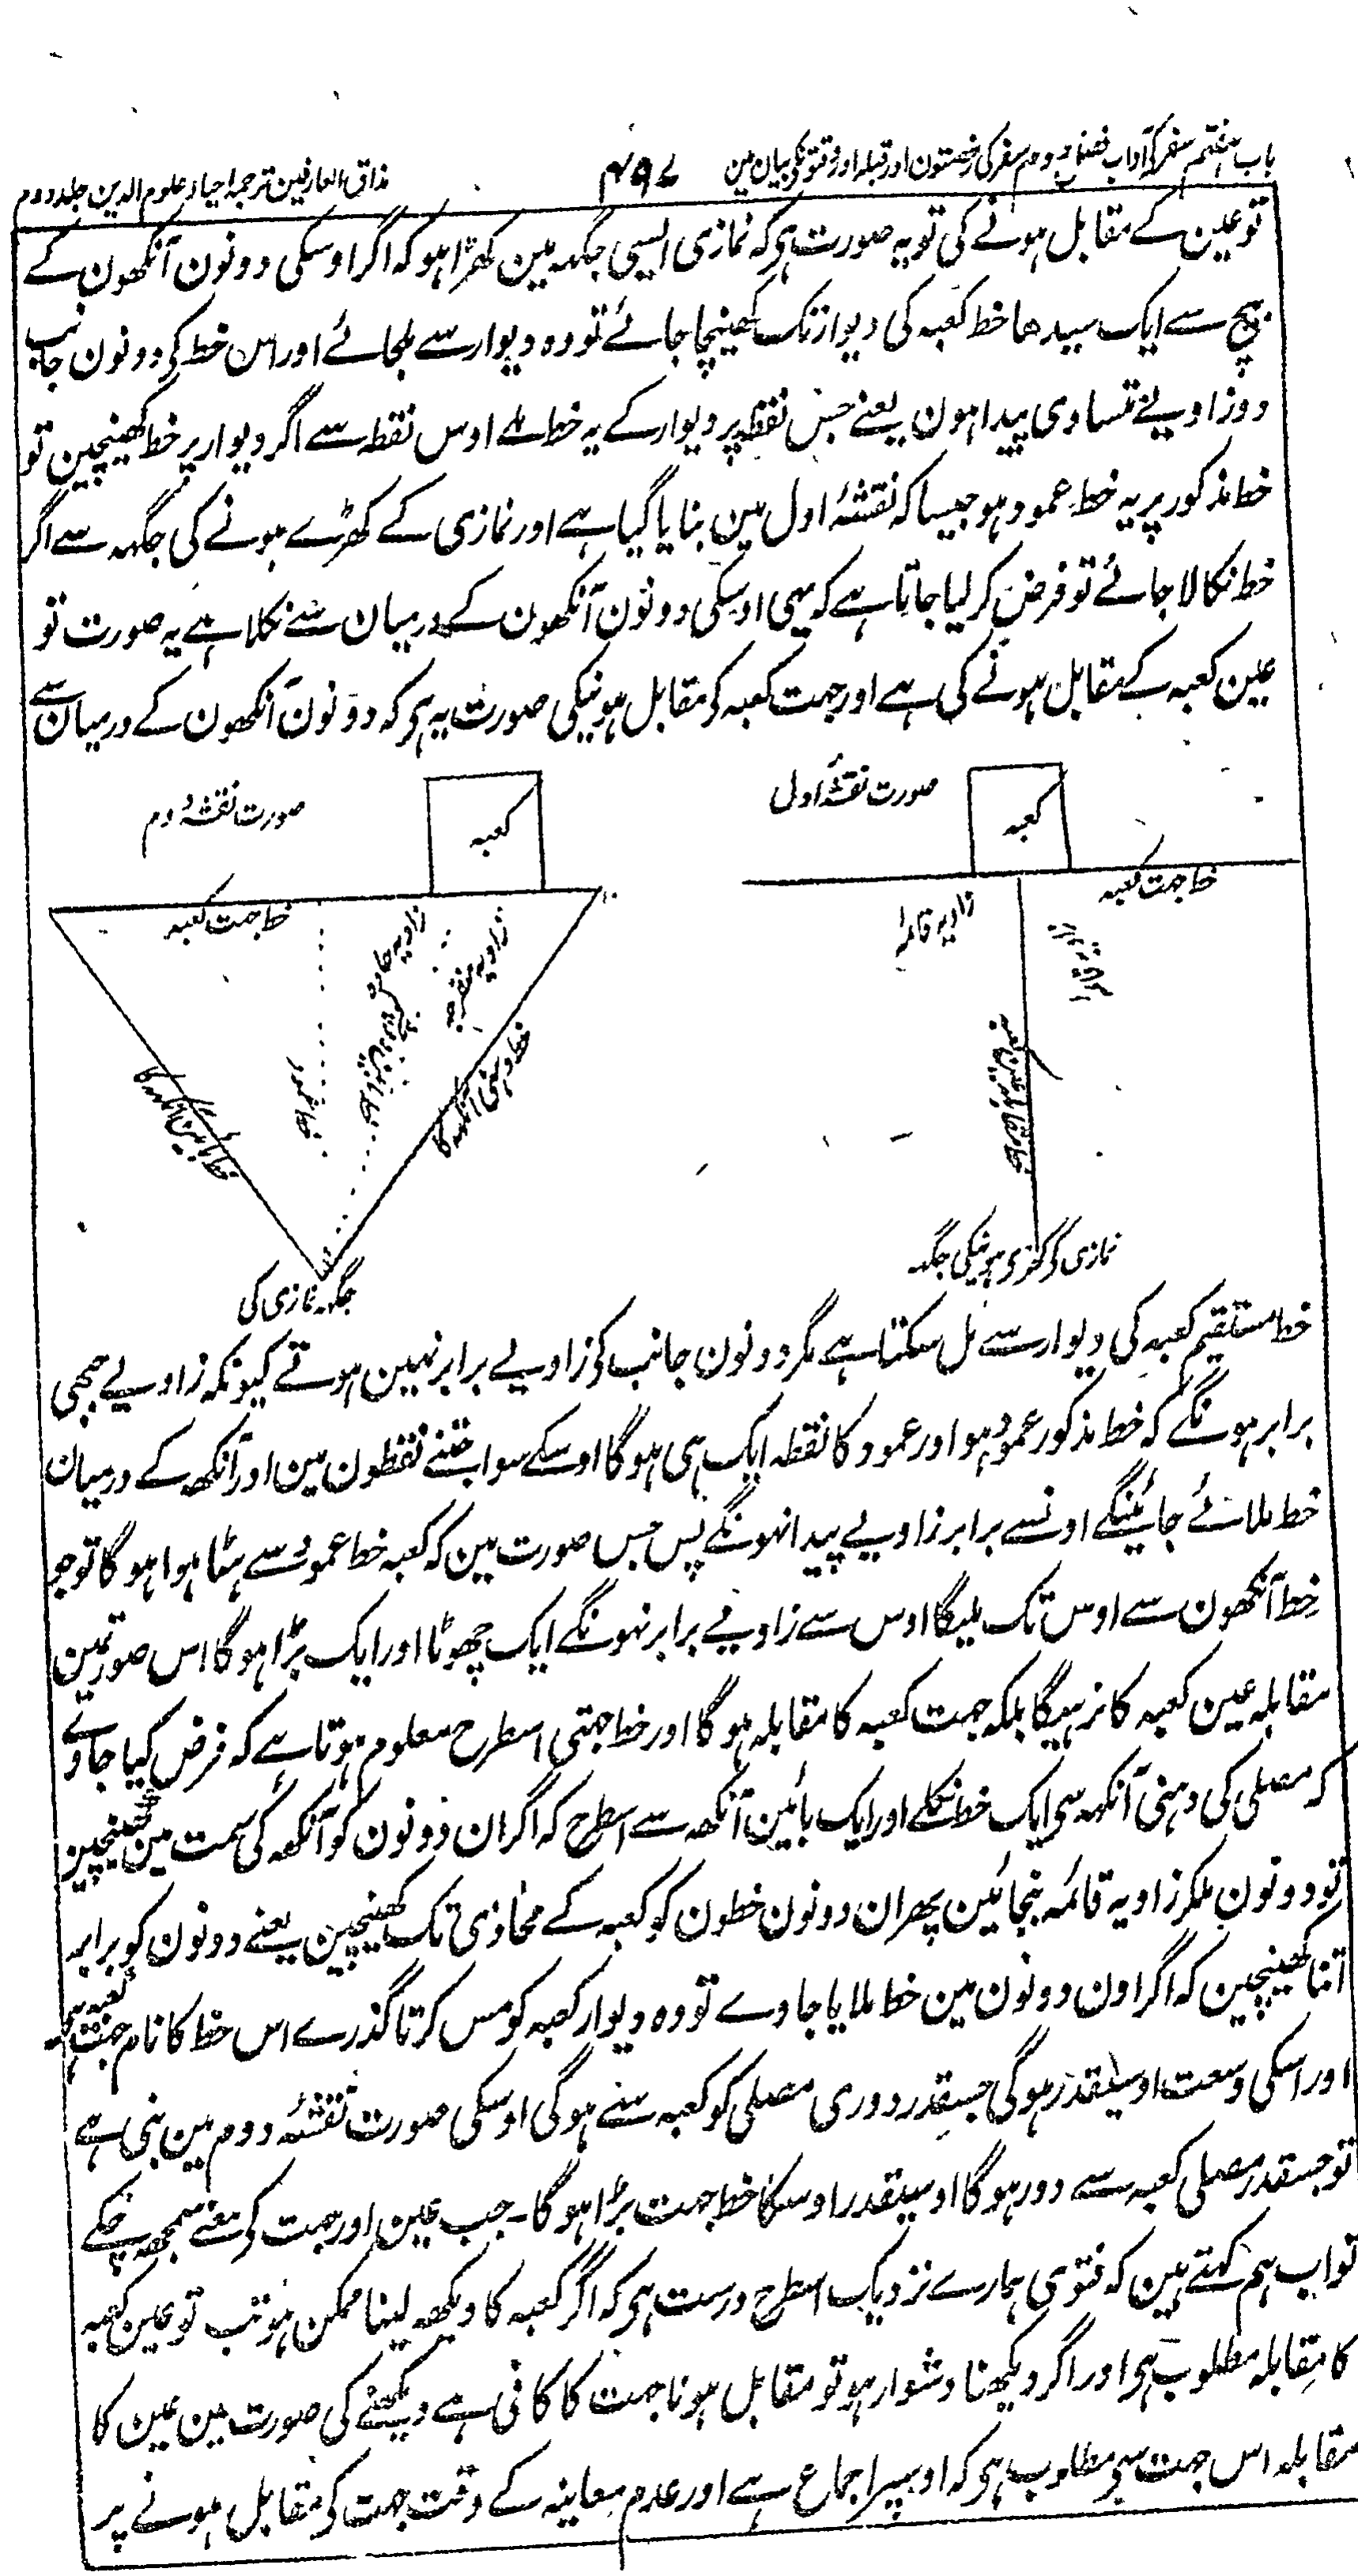 باب ہفتم سفر کے آداب فصل دوم سفر کی رخصتون اور قبلہ اور وقتونکے بیان مین
۴۹۷
مذاق العارفین ترجمہ احیاء علوم الدین جلد دوم
تو عین کے مقابل ہونے کی تو یہ صورت ہی کہ نمازی ایسی جگہہ مین کھڑا ہو کہ اگر اوسکی دونون آنکھون کے
بیچ سے ایک سیدھا خط کعبہ کی دیوار تک کھینچا جائے تو وہ دیوار سے ملجائے اور اس خط کے دونون جانب
دو زاویے متساوی پیدا ہون یعنے جس نقطہ پر دیوار کے یہ خط ملے اوس نقطہ سے اگر دیوار پر خط کھینچین تو
خط مذکور پر یہ خط عمود ہو جیسا کہ نقشۂ اول مین بنایا گیا ہے اور نمازی کے کھڑے ہونے کی جگہہ سے اگر
خط نکالا جائے تو فرض کر لیا جاتا ہے کہ یہی اوسکی دونون آنکھون کے درمیان سے نکلا ہے یہ صورت تو
عین کعبہ کے مقابل ہونے کی ہے اور جہت کعبہ کے مقابل ہونیکی صورت یہ ہی کہ دونون آنکھون کے درمیان سے
صورت نقشۂ اول
کعبہ
خط جہت کعبہ
زاویہ قائمہ
نمازی کے کھڑے ہونیکی جگہہ
صورت نقشۂ دوم
کعبہ
خط جہت کعبہ
زاویہ حادہ
زاویہ منفرجہ
خط دہنی آنکھہ کا
خط بائین آنکھہ کا
جگہہ نمازی کی
خط مستقیم کعبہ کی دیوار سے مل سکتا ہے مگر دونون جانب کے زاویے برابر نہین ہوتے کیونکہ زاویے جبھی
برابر ہونگے کہ خط مذکور عمود ہو اور عمود کا نقطہ ایک ہی ہوگا اوسکے سوا جتنے نقطون مین اور آنکھہ کے درمیان
خط ملائے جائینگے اونسے برابر زاویے پیدا نہونگے پس جس صورت مین کہ کعبہ خط عمود سے ہٹا ہوا ہوگا تو جو
خط آنکھون سے اوس تک ملیگا اوس سے زاویے برابر نہونگے ایک چھوٹا اور ایک بڑا ہوگا اس صورتمین
مقابلہ عین کعبہ کا نرہیگا بلکہ جہت کعبہ کا مقابلہ ہوگا اور خط جہتی اسطرح معلوم ہوتا ہے کہ فرض کیا جاوے
کہ مصلی کی دہنی آنکھہ سے ایک خط نکلے اور ایک بائین آنکھہ سے اسطرح کہ اگر ان دونون کو آنکھہ کی سمت مین کھینچین
تو دونون ملکر زاویہ قائمہ بنجائین پھر ان دونون خطون کو کعبہ کے محاذی تک کھینچین یعنے دونون کو برابر
اتنا کھینچین کہ اگر اون دونون مین خط ملایا جاوے تو وہ دیوار کعبہ کو مس کرتا گذرے اس خط کا نام جہت کعبہ ہے
اور اسکی وسعت اوسیقدر ہوگی جسقدر دوری مصلی کو کعبہ سے ہوگی اوسکی صورت نقشۂ دوم مین بنی ہے
تو جسقدر مصلی کعبہ سے دور ہوگا اوسیقدر اوسکا خط جہت بڑا ہوگا۔ جب عین اور جہت کے معنے سمجھہ چکے
تو اب ہم کہتے ہین کہ فتوی ہمارے نزدیک اسطرح درست ہی کہ اگر کعبہ کا دیکھہ لینا ممکن ہو تب تو عین کعبہ
کا مقابلہ مطلوب ہی اور اگر دیکھنا دشوار ہو تو مقابل ہونا جہت کا کافی ہے دیکھنے کی صورت مین عین کا
مقابلہ اس جہت سے مطلوب ہی کہ اوسپر اجماع ہے اور عدم معاینہ کے وقت جہت کے مقابل ہونے پر